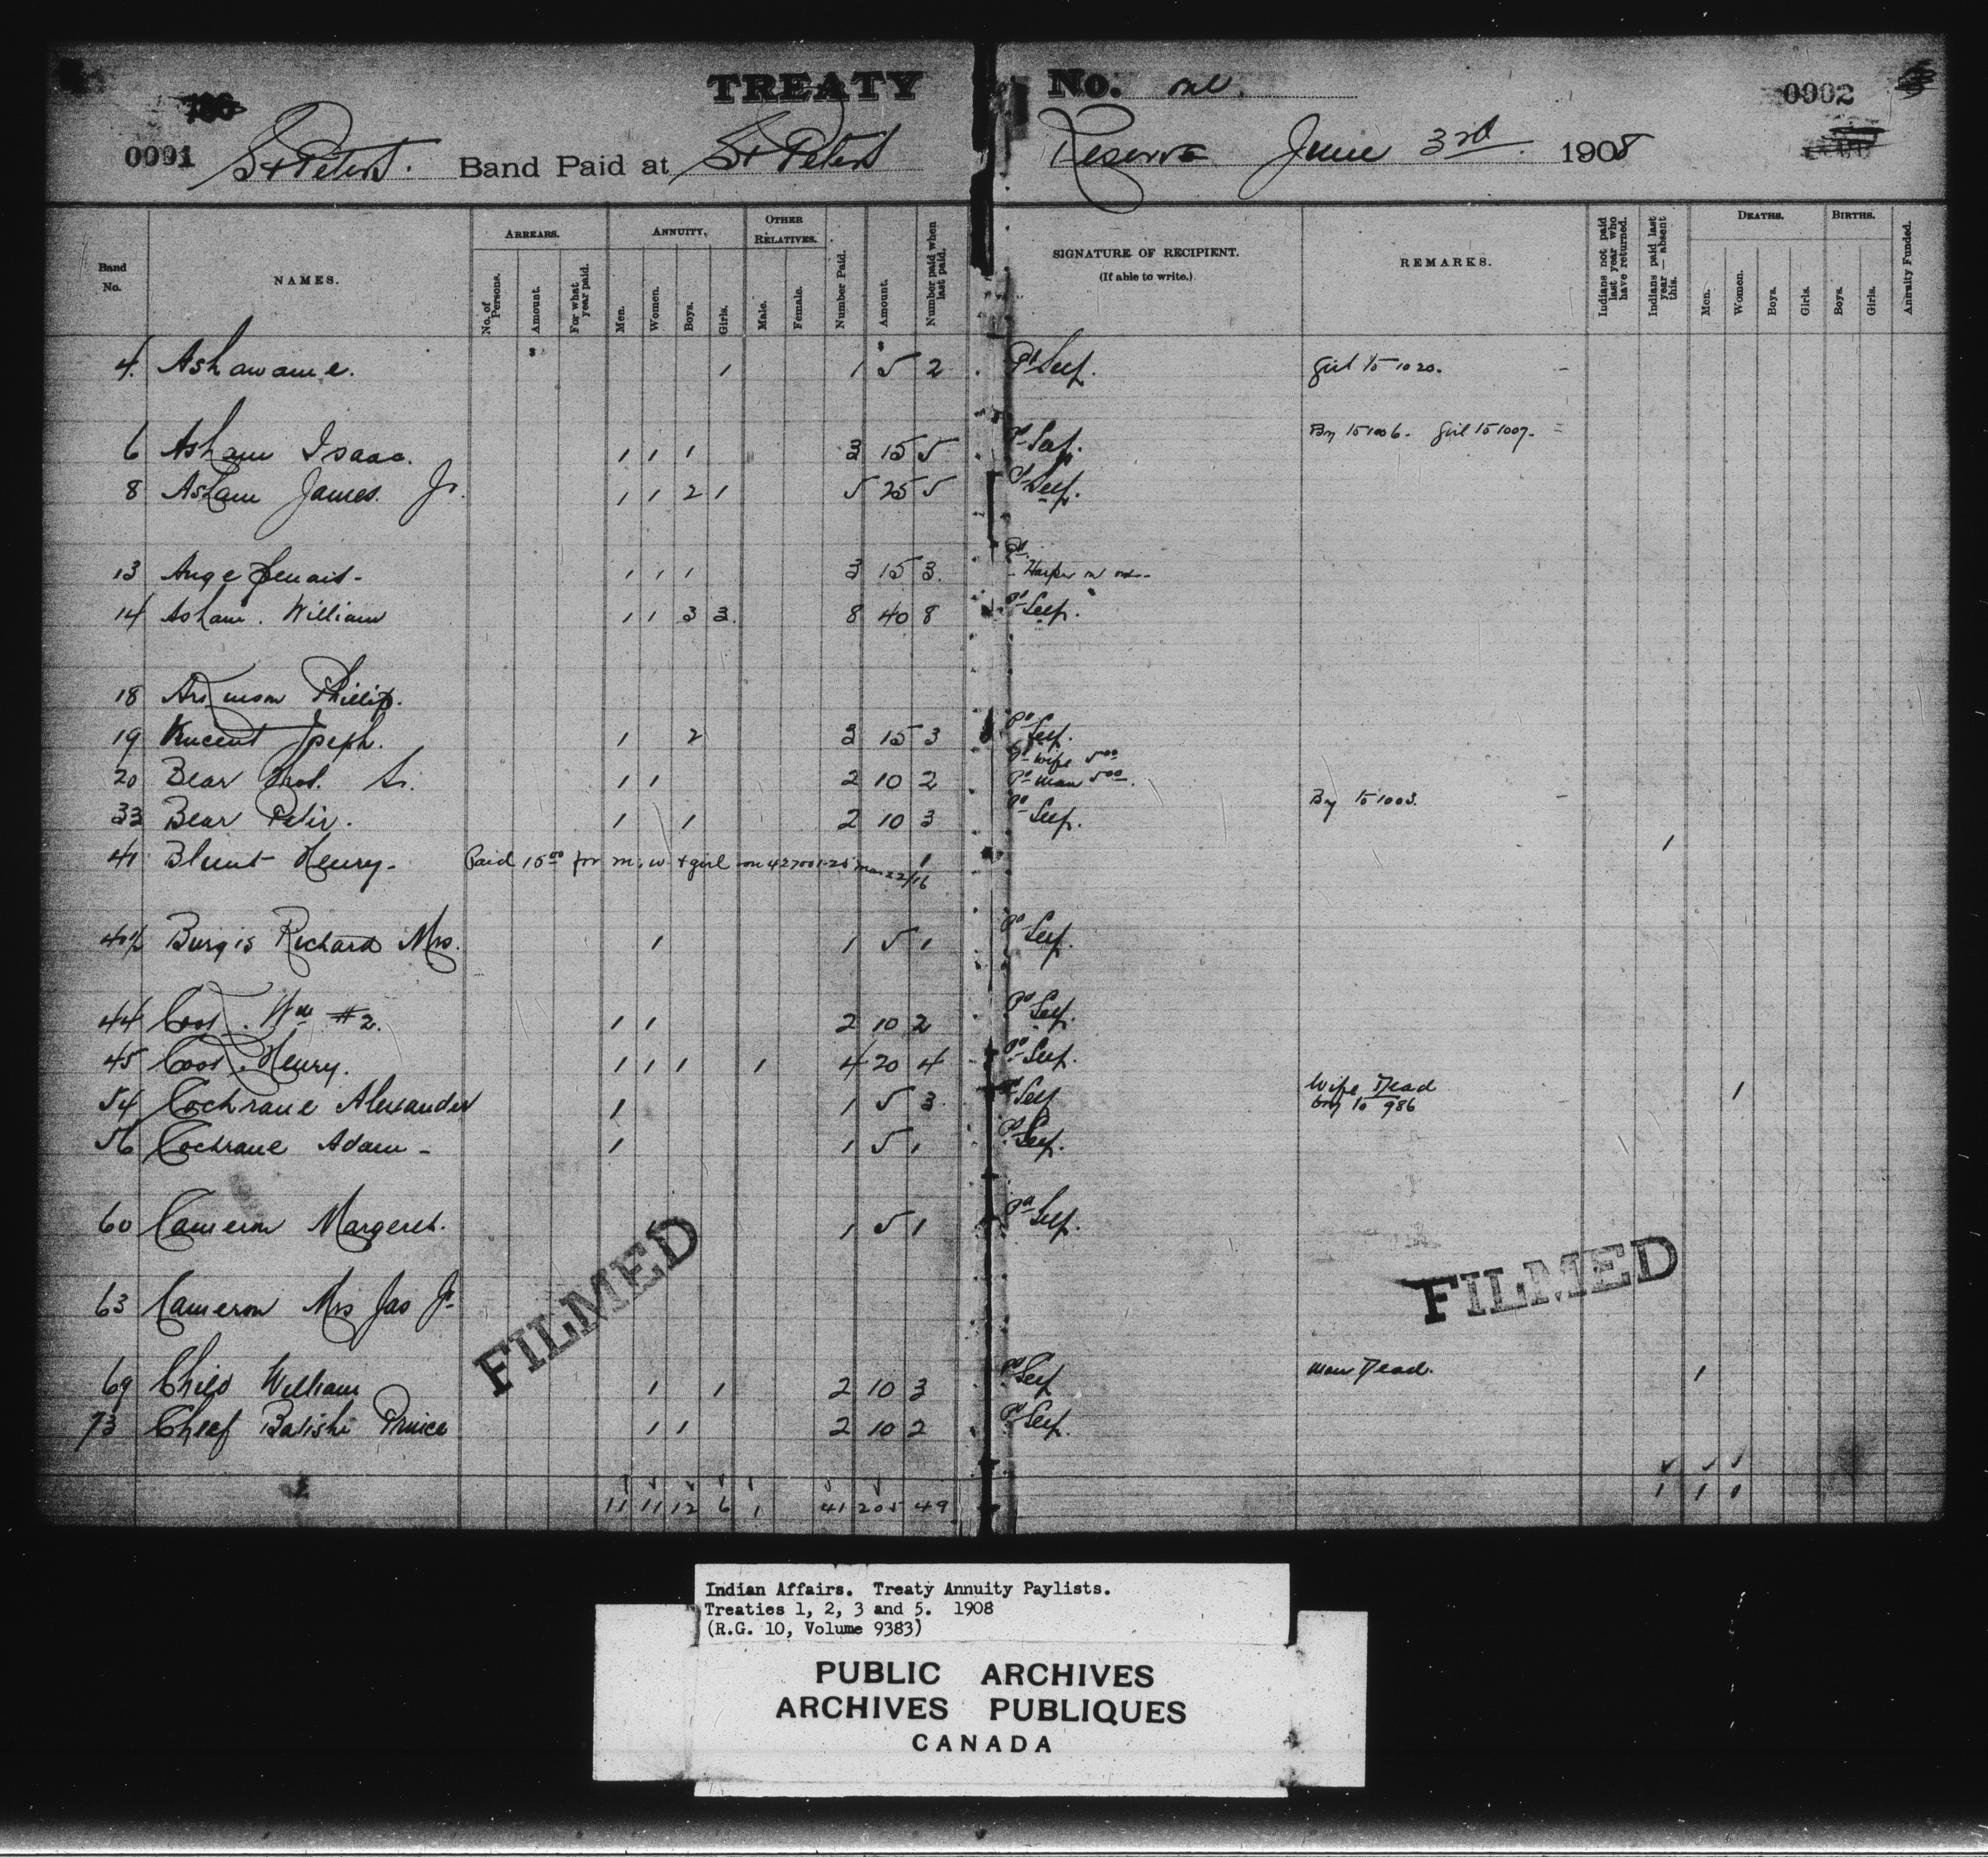 TREATY No. one.
0991 St Peters. Band Paid at St Peters Reserve June 3rd 1908 0992
Band No. NAMES. ARREARS. No. of Persons. Amount. For what year paid. ANNUITY. Men. Women. Boys. Girls. OTHER RELATIVES. Male. Female. Number Paid. Amount. Number paid when last paid. SIGNATURE OF RECIPIENT. (If able to write.) REMARKS. Indians not paid last year who have returned. Indians paid last year — absent this. DEATHS. Men. Women. Boys. Girls. BIRTHS. Boys. Girls. Annuity Funded.
$ $
4. Ashawame. 1 1 5 2 Pd Self. Girl to 1020.
6 Asham Isaac. 1 1 1 3 15 5 Pd Self. Boy to 1006. Girl to 1007.
8 Asham James. Jr. 1 1 2 1 5 25 5 Pd Self.
13 Ange 1 1 1 3 15 3. Pd Harper
14 Asham. William 1 1 3 3. 8 40 8 Pd Self.
18 Phillip.
19 Vincent Joseph. 1 2 3 15 3 Pd Self.
20 Bear Sr. 1 1 2 10 2 Pd Wife 5.00 Pd Man 5.00.
33 Bear Peter. 1 1 2 10 3 Pd Self. Boy to 1003.
41 Blunt Henry. Paid 15.00 for m, w + girl on Mar 22/16 1 1
Burgis Richard Mrs. 1 1 5 1 Pd Self.
44 Wm #2. 1 1 2 10 2 Pd Self.
45 Henry. 1 1 1 1 4 20 4 Pd Self.
54 Cochrane Alexander 1 1 5 3 Pd Self Wife Dead Boy to 986 1
56 Cochrane Adam 1 1 5 1 Pd Self.
60 Cameron Margeret. 1 1 5 1 Pd Self.
63 Cameron Mrs Jas Jr
69 Child William 1 1 2 10 3 Pd Self Man Dead. 1
73 Chief Batishe Prince 1 1 2 10 2 Pd Self.
11 11 12 6 1 41 205 49 1 1 1
FILMED
FILMED
Indian Affairs. Treaty Annuity Paylists.
Treaties 1, 2, 3 and 5. 1908
(R.G. 10, Volume 9383)
PUBLIC ARCHIVES
ARCHIVES PUBLIQUES
CANADA